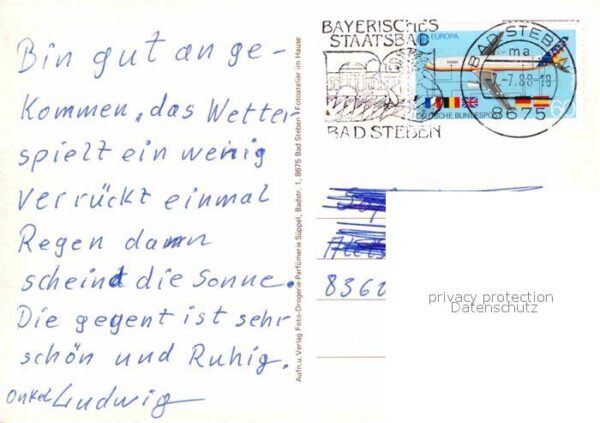 Bin gut an ge-
kommen, das Wetter
spielt ein wenig
verrückt einmal
Regen dann
scheint die Sonne.
Die gegent ist sehr
schön und Ruhig.
Onkel Ludwig
Aufn. u. Verlag Foto-Drogerie-Parfümerie Süppel, Badstr. 1, 8675 Bad Steben · Fotoatelier im Hause
BAYERISCHES
STAATSBAD
BAD STEBEN
EUROPA
60
DEUTSCHE BUNDESPOST
BAD STEBEN
ma
-7.-7.88-18
8675
8362
privacy protection
Datenschutz